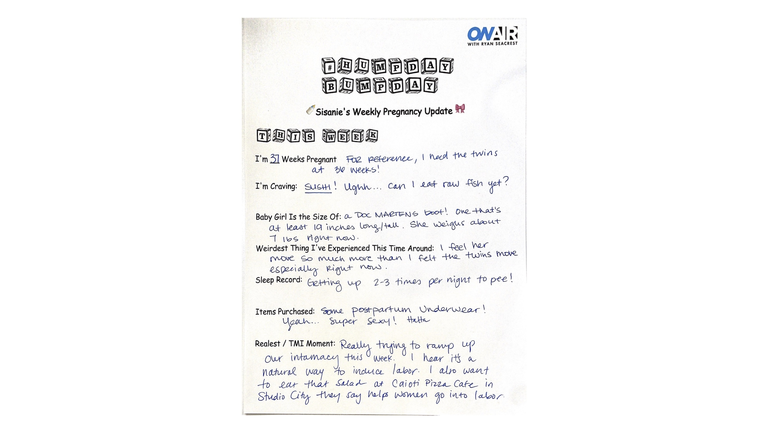 ON AIR
WITH RYAN SEACREST
#HUMPDAY
BUMPDAY
Sisanie's Weekly Pregnancy Update
THIS WEEK
I'm 37 Weeks Pregnant For reference, I had the twins
at 36 weeks!
I'm Craving: SUSHI! Ughh... Can I eat raw fish yet?
Baby Girl Is the Size Of: a Doc MARTENS boot! One that's
at least 19 inches long/tall. She weighs about
7 lbs right now.
Weirdest Thing I've Experienced This Time Around: I feel her
move so much more than I felt the twins move
especially right now.
Sleep Record: Getting up 2-3 times per night to pee!
Items Purchased: Some postpartum underwear!
Yeah... super sexy! Haha
Realest / TMI Moment: Really trying to ramp up
our intamacy this week. I hear its a
natural way to induce labor. I also want
to eat that salad at Caioti Pizza Cafe in
Studio City they say helps women go into labor